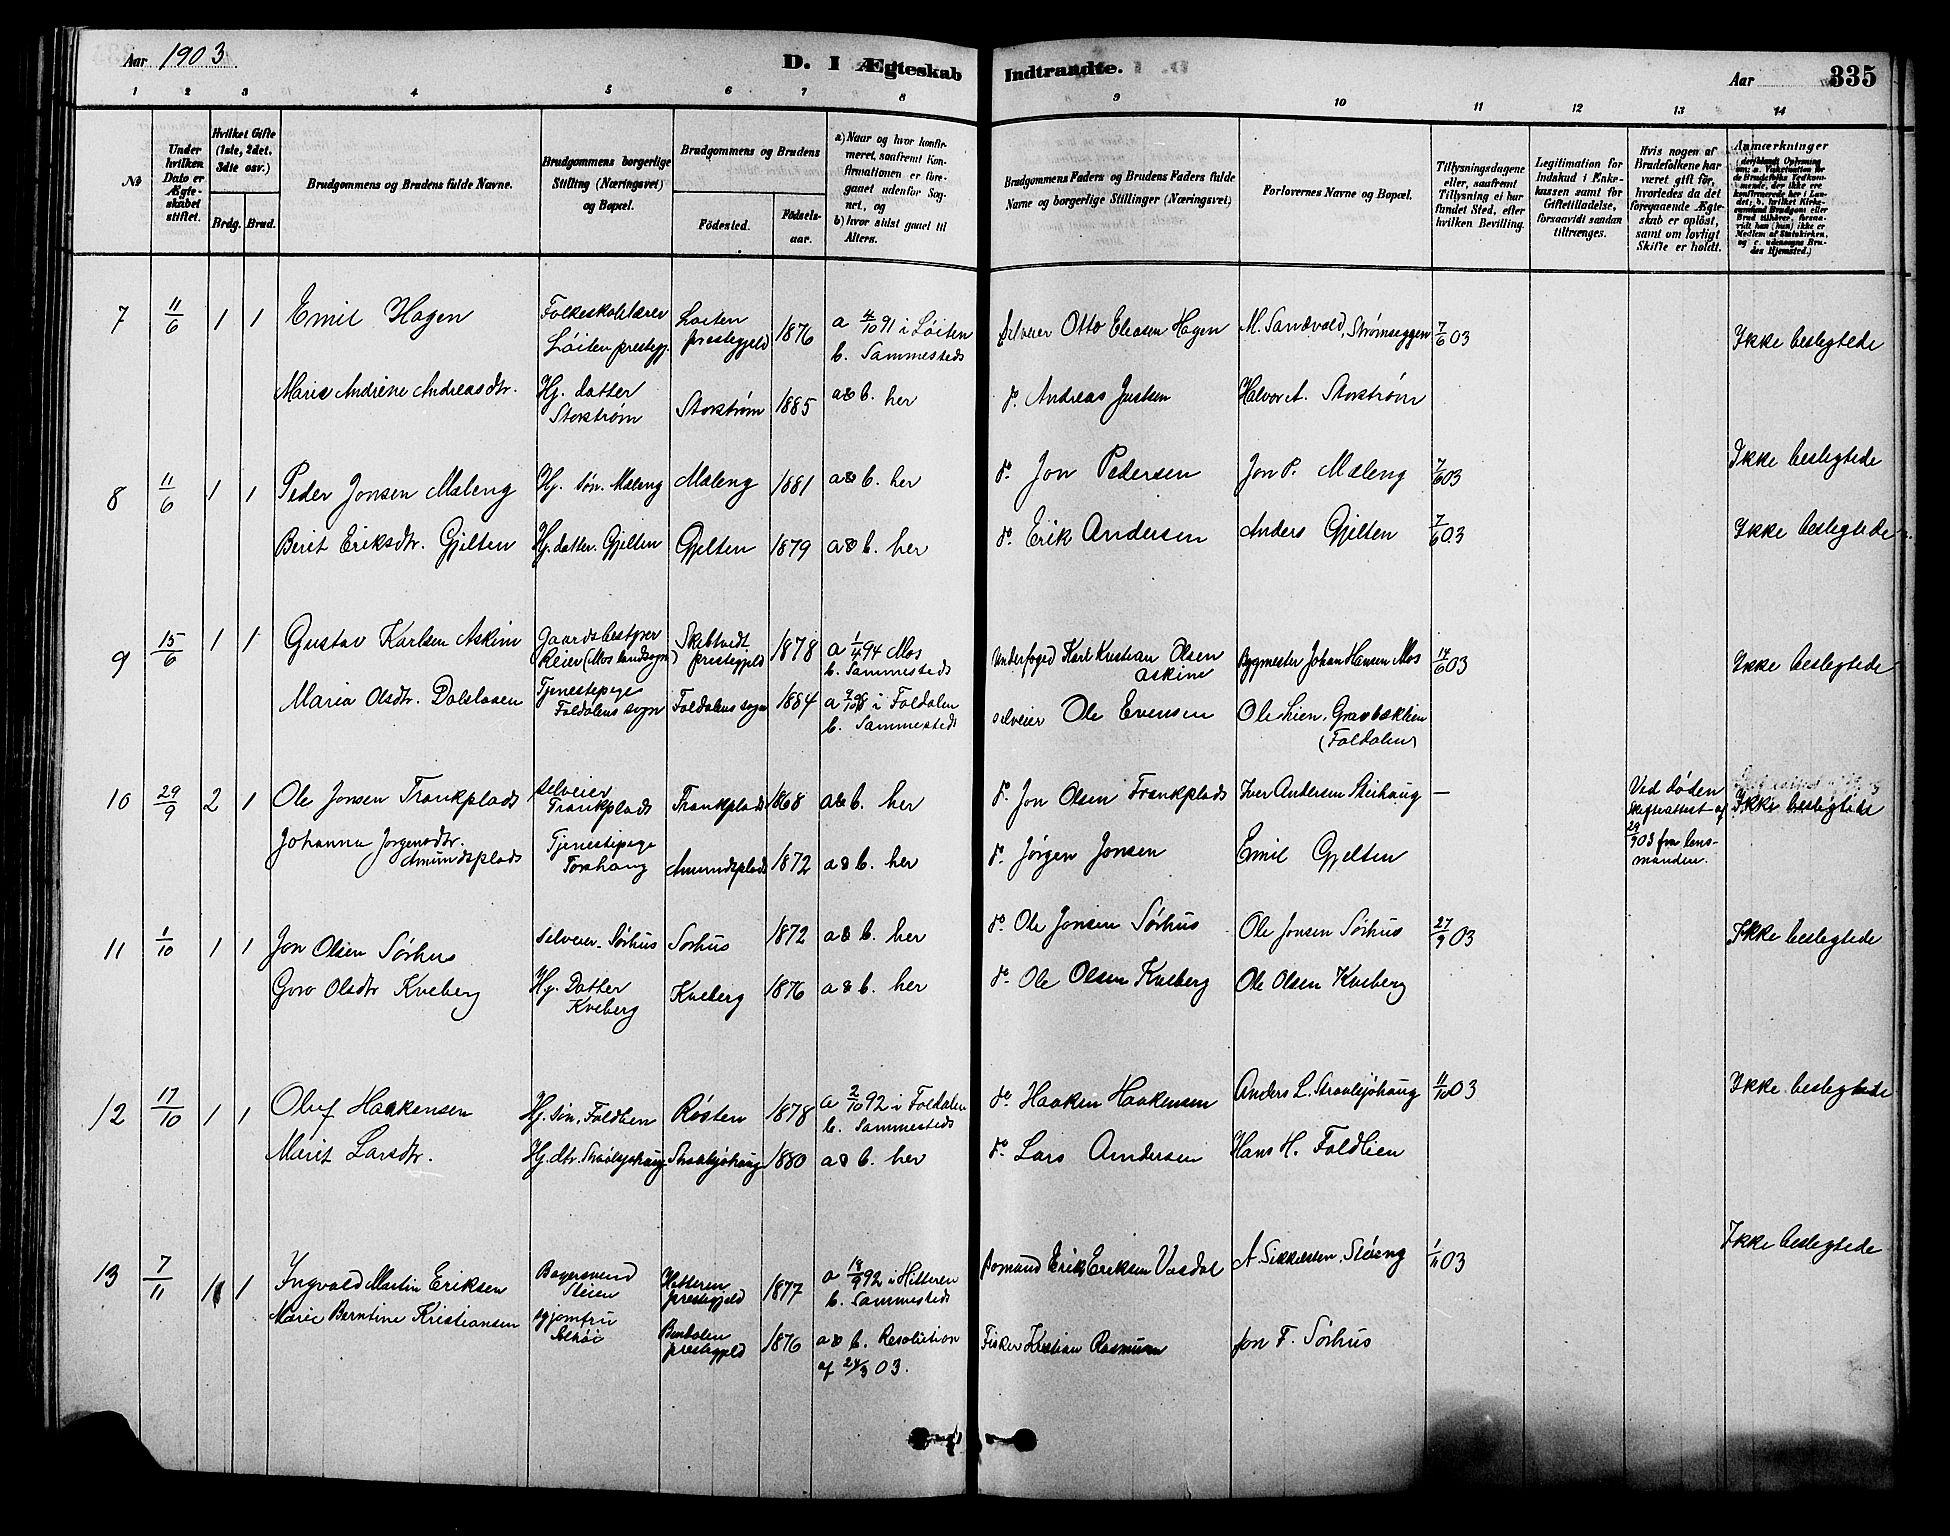 Aar 1903. D. I Ægteskab Indtraadte. Aar 335
1 2 3 4 5 6 7 8 9 10 11 12 13 14
№
Under hvilken Dato er Ægteskabet stiftet.
Hvilket Gifte (1ste, 2det, 3die osv.)
Brdg. Brud.
Brudgommens og Brudens fulde Navne.
Brudgommens borgerlige Stilling (Næringsvei) og Bopæl.
Brudgommens og Brudens
Fødested. Fødselsaar.
a) Naar og hvor konfirmeret, saafremt Konfirmationen er foregaaet udenfor Sognet, og
b) hvor sidst gaaet til Alters.
Brudgommens Faders og Brudens Faders fulde Navne og borgerlige Stillinger (Næringsvei)
Forlovernes Navne og Bopæl.
Tillysningsdagene eller, saafremt Tillysning ei har fundet Sted, efter hvilken Bevilling.
Legitimation for Indskud i Enkekassen samt for Giftetilladelse, forsaavidt saadan tiltrænges.
Hvis nogen af Brudefolkene har været gift før, hvorledes da det foregaaende Ægteskab er opløst, samt om lovligt Skifte er holdt.
Anmærkninger
7 11/6 1 1 Emil Hagen Folkeskolelærer Løiten prestegj. Løiten prestegjeld 1876 a 4/10 91 i Løiten b. Sammesteds Selveier Otto Eliasen Hagen M. Sandvold, Strømseggen 7/6 03 Ikke beslegtede
Marie Andrine Andreasdtr. Hj. datter Storstrøm Storstrøm 1885 a&b. her do. Andreas Justsen Halvor A. Storstrøm
8 11/6 1 1 Peder Jonsen Mæleng Hj. søn. Mæleng Mæleng 1881 a&b. her do. Jon Pedersen Jon P. Mæleng 7/6 03 Ikke beslegtede
Berit Eriksdtr. Gjelten Hj. datter. Gjelten Gjelten 1879 a&b. her do. Erik Andersen Anders Gjelten 7/6 03 Ikke beslegtede
9 15/6 1 1 Gustav Karlsen Askim Gaardsbestyrer Reier (Mos landsogn) Skibtvedt prestegjeld 1878 a 1/4 94 Mos b. Sammesteds Underfoged Karl Kristian Olsen Askim Bygmester Johan Hansen Mos 14/6 03 Ikke beslegtede
Maria Olsdtr. Dalslaaen Tjenestepige Foldalens sogn Foldalens sogn 1884 a i Foldalen b. Sammesteds selveier Ole Evensen Ole Lien, Grasbæklien (Foldalen)
10 29/9 2 1 Ole Jonsen Frankplads selveier Frankplads Frankplads 1868 a&b. her do. Jon Olsen Frankplads Iver Andersen Steihaug — Ved døden Skifteattest af 29/9 03 fra lensmanden. Ikke beslegtede
Johanna Jørgensdtr. Amundsplads Tjenestepige Torshaug Amundsplads 1872 a&b. her do. Jørgen Jonsen Emil Gjelten
11 1/10 1 1 Jon Olsen Sørhus selveier. Sørhus Sørhus 1872 a&b. her do. Ole Jonsen Sørhus Ole Jonsen Sørhus 27/9 03 Ikke beslegtede
Guro Olsdtr Kveberg Hj. Datter Kveberg Kveberg 1876 a&b. her do. Ole Olsen Kveberg Ole Olsen Kveberg
12 17/10 1 1 Oluf Haakensen Hj. Søn, Foldlien Røsten 1878 a 2/10 92 i Foldalen b. Sammesteds do. Haaken Haakensen Anders L. Straalsjøhaug 11/10 03 Ikke beslegtede
Marit Larsdtr. Hj. dtr. Straalsjøhaug. Straalsjøhaug 1880 a&b. her do. Lars Andersen Hans H. Foldlien
13 7/11 1 1 Ingvald Martin Eriksen Bagersvend Steien Hitteren prestegjeld 1877 a 18/9 92 i Hitteren b. Sammesteds Bomand Erik Eriksen Vasdal A. Sikkesten, Støeng 1/11 03 Ikke beslegtede
Marie Berntine Kristiansen syjomfru prestegjeld 1876 a&b. Resolution af 24/3 03. Fisker Kristian Rasmusen Jon F. Sørhus